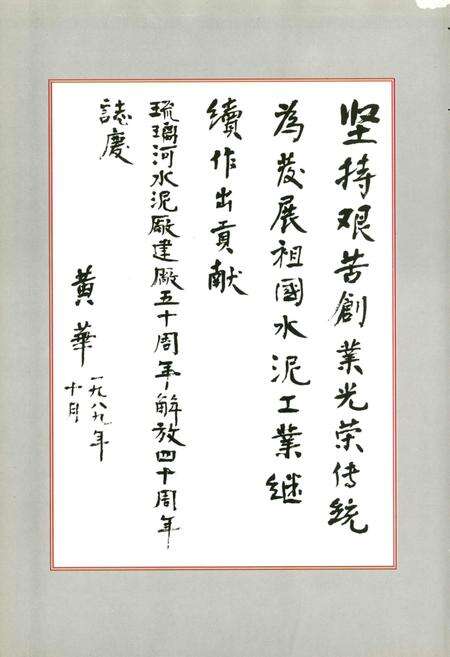 坚持艰苦創業光荣傳統
為发展祖國水泥工業继
續作出貢献
琉璃河水泥廠建廠五十周年解放四十周年
誌慶
黄華
一九八九年
十月